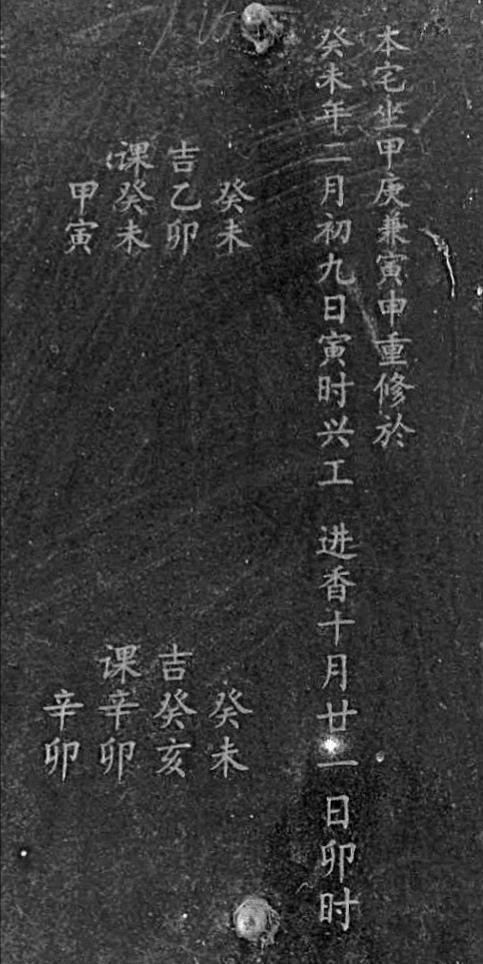 本宅坐甲庚兼寅申重修於
癸未年二月初九日寅时兴工 进香十月廿一日卯时
癸未
吉乙卯
课癸未
甲寅
癸未
吉癸亥
课辛卯
辛卯